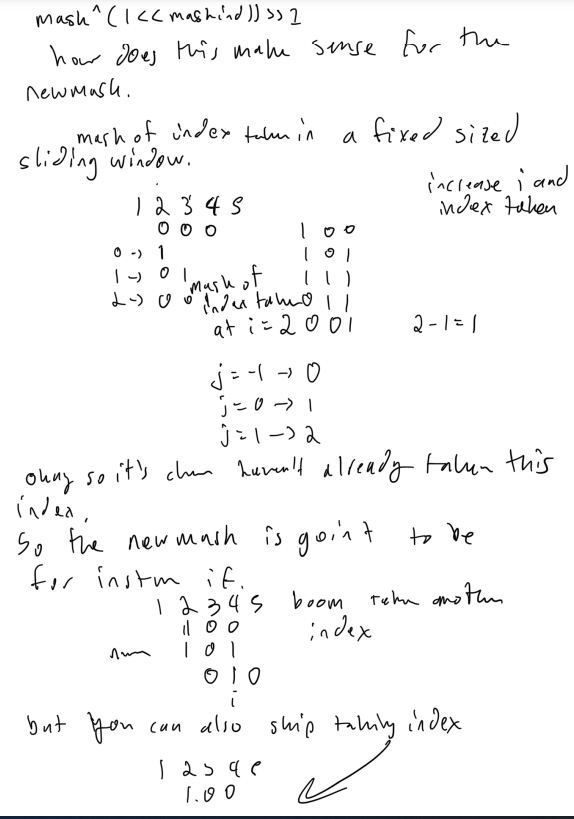 mask^(1<<maskind))>>1
how does this make sense for the
newmask.
mask of index taken in a fixed sized
sliding window.
increase i and
index taken
1 2 3 4 5
0 0 0
1 0 0
0 -> 1
1 0 1
1 -> 0 1
1 1 1
2 -> 0 0
mask of
index taken
0 1 1
at i = 2
0 0 1
2-1=1
j = -1 -> 0
j = 0 -> 1
j = 1 -> 2
okay so it's when haven't already taken this
index.
So the new mask is goint to be
for instan if.
1 2 3 4 5 boom taken another
index
1 0 0
1 0 1
0 1 0
i
but you can also skip taking index
1 2 3 4
1.00